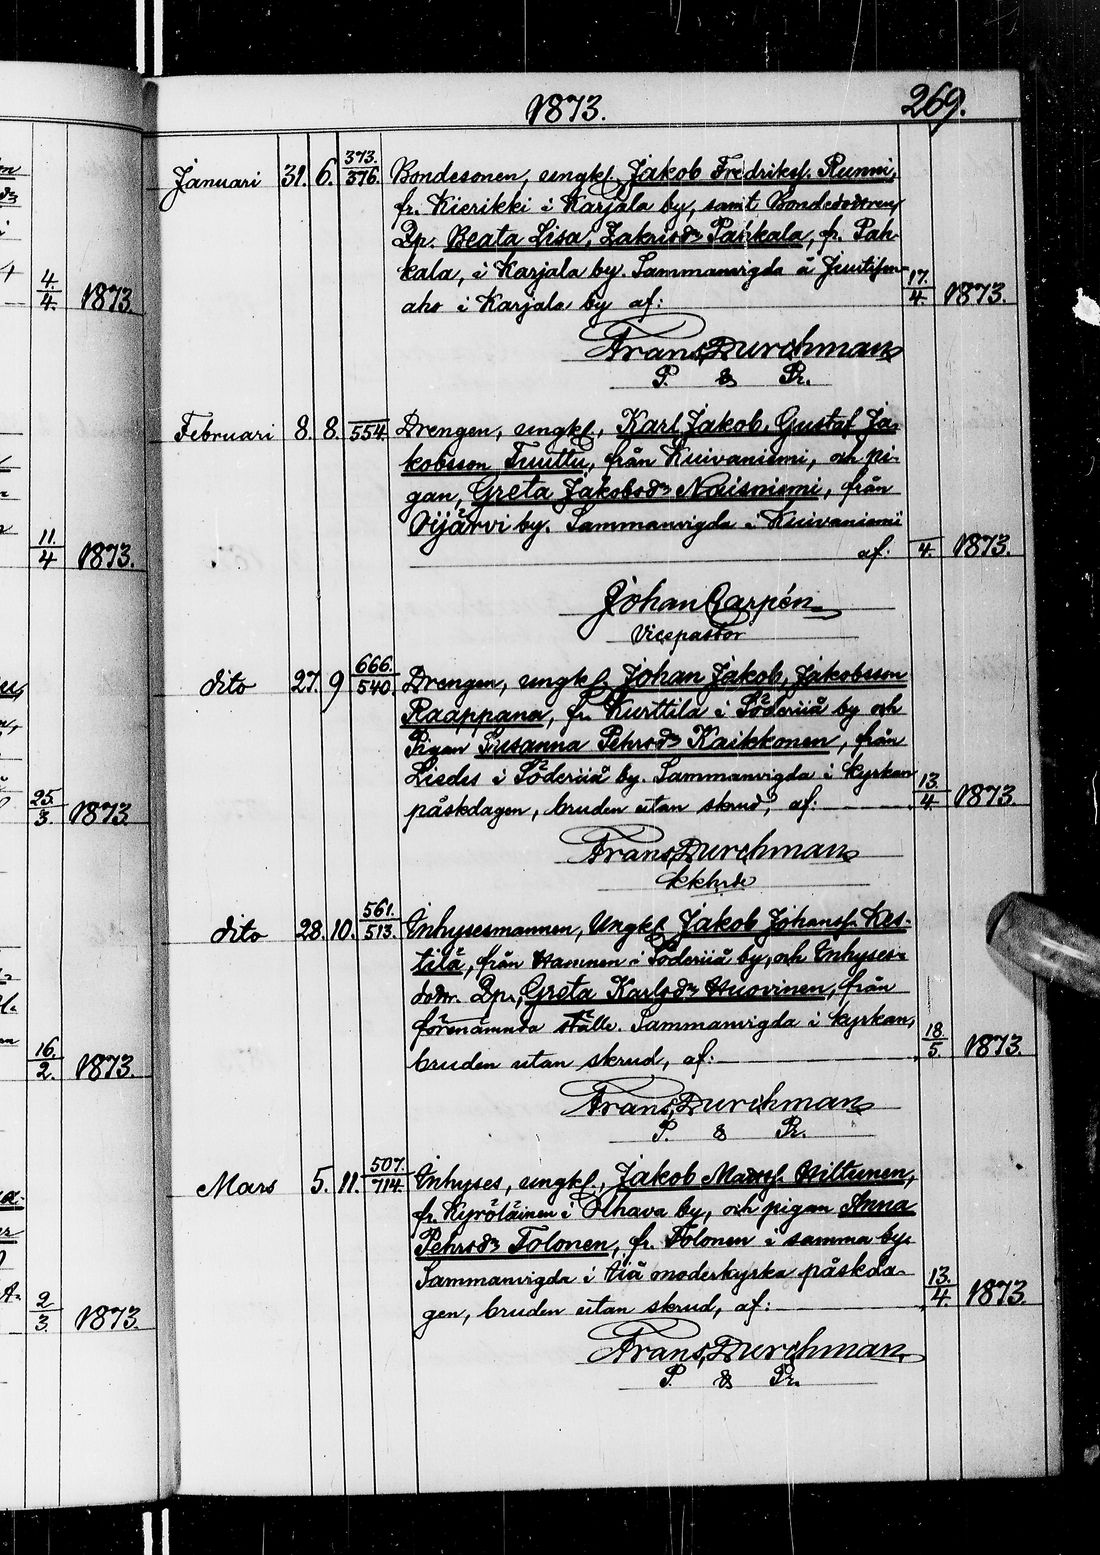 1873.
269.
Januari 31. 6. 373. 376. Bondesonen, ungkl. Jakob Fredriksf. Runni,
fr. Kierikki i Karjala by, samt Bondedottren
Pp. Beata Lisa, Zakrisdr Pahkala, fr. Pah-
kala, i Karjala by. Sammanvigda å
aho i Karjala by af: 17. 4. 1873.
Frans Durchman
P. & Pr.
Februari 8. 8. 554. Drengen, ungkl., Karl Jakob, Gustaf Ja-
kobsson Tuuttu, från Kuivaniemi, och pi-
gan, Greta Jakobsdr Näisniemi, från
Oijärvi by. Sammanvigda i Kuivaniemi
af: 4. 1873.
Johan Carpén
Vicepastor
dito 27. 9 666. 540. Drengen, ungkl. Johan Jakob, Jakobsson
Raappana, fr. Kurttila i Söderiiå by och
Pigan Susanna Pehrsdr Kaikkonen, från
i Söderiiå by. Sammanvigda i kyrkan
påskdagen, bruden utan skrud, af: 13. 4. 1873.
Frans Durchman
Kkhrde
dito 28. 10. 561. 513. Inhysesmannen, Ungkl. Jakob Johansf. Kes-
tilä, från Hamnen i Söderiiå by, och Inhyses-
dotr. Pp., Greta Karlsdr Huovinen, från
förenämnda ställe. Sammanvigda i kyrkan,
bruden utan skrud, af: 18. 5. 1873.
Frans Durchman
P. & Pr.
Mars 5. 11. 507. 714. Inhyses, ungkl., Jakob Mattsf. Hiltunen,
fr. Kyröläinen i Olhava by, och pigan Anna
Pehrsdr Tolonen, fr. Tolonen i samma by.
Sammanvigda i Iiå moderkyrka påskda-
gen, bruden utan skrud, af: 13. 4. 1873.
Frans Durchman
P. & Pr.
4. 4. 1873.
11. 4 1873.
25. 3. 1873.
16. 2. 1873.
2 3. 1873.